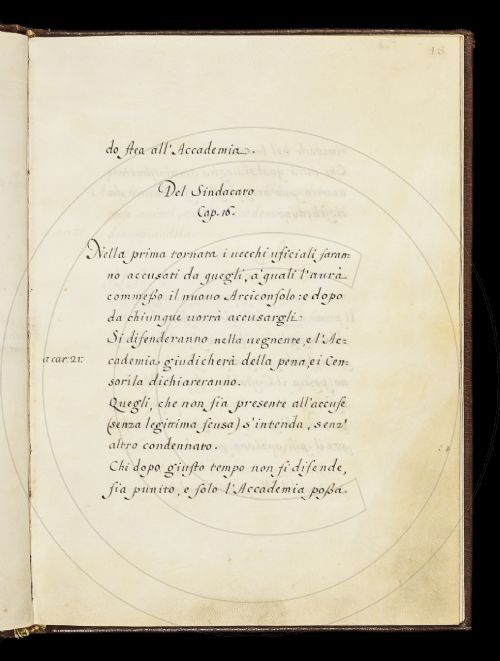 18
do stea all'Accademia.
Del Sindacaro
Cap. 16.
Nella prima tornata i uecchi uficiali saran=
no accusati da quegli, a' quali l'aurà
commeßo il nuouo Arciconsolo: e dopo
da chiunque uorrà accusargli.
Si difenderanno nella uegnente, e l'Ac=
a car: 21.
cademia giudicherà della pena, e i Cen=
sori la dichiareranno.
Quegli, che non sia presente all'accuse
(senza legitima scusa) s'intenda, senz'
altro condennato.
Chi dopo giusto tempo non si difende,
sia punito, e solo l'Accademia poßa